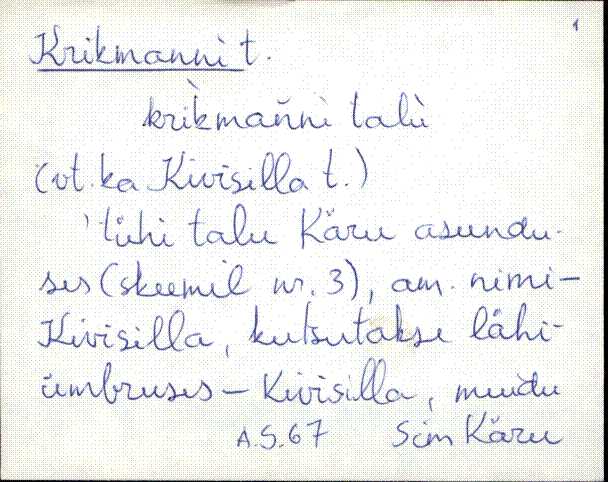 1
Krikmanni t.
krìkmańni talù
(vt. ka Kivisilla t.)
'tühi talu Käru asundu-
ses (skeemil nr. 3), am. nimi-
Kivisilla, kutsutakse lähi-
ümbruses - Kivisilla, muidu
A.S. 67 Sim Käru